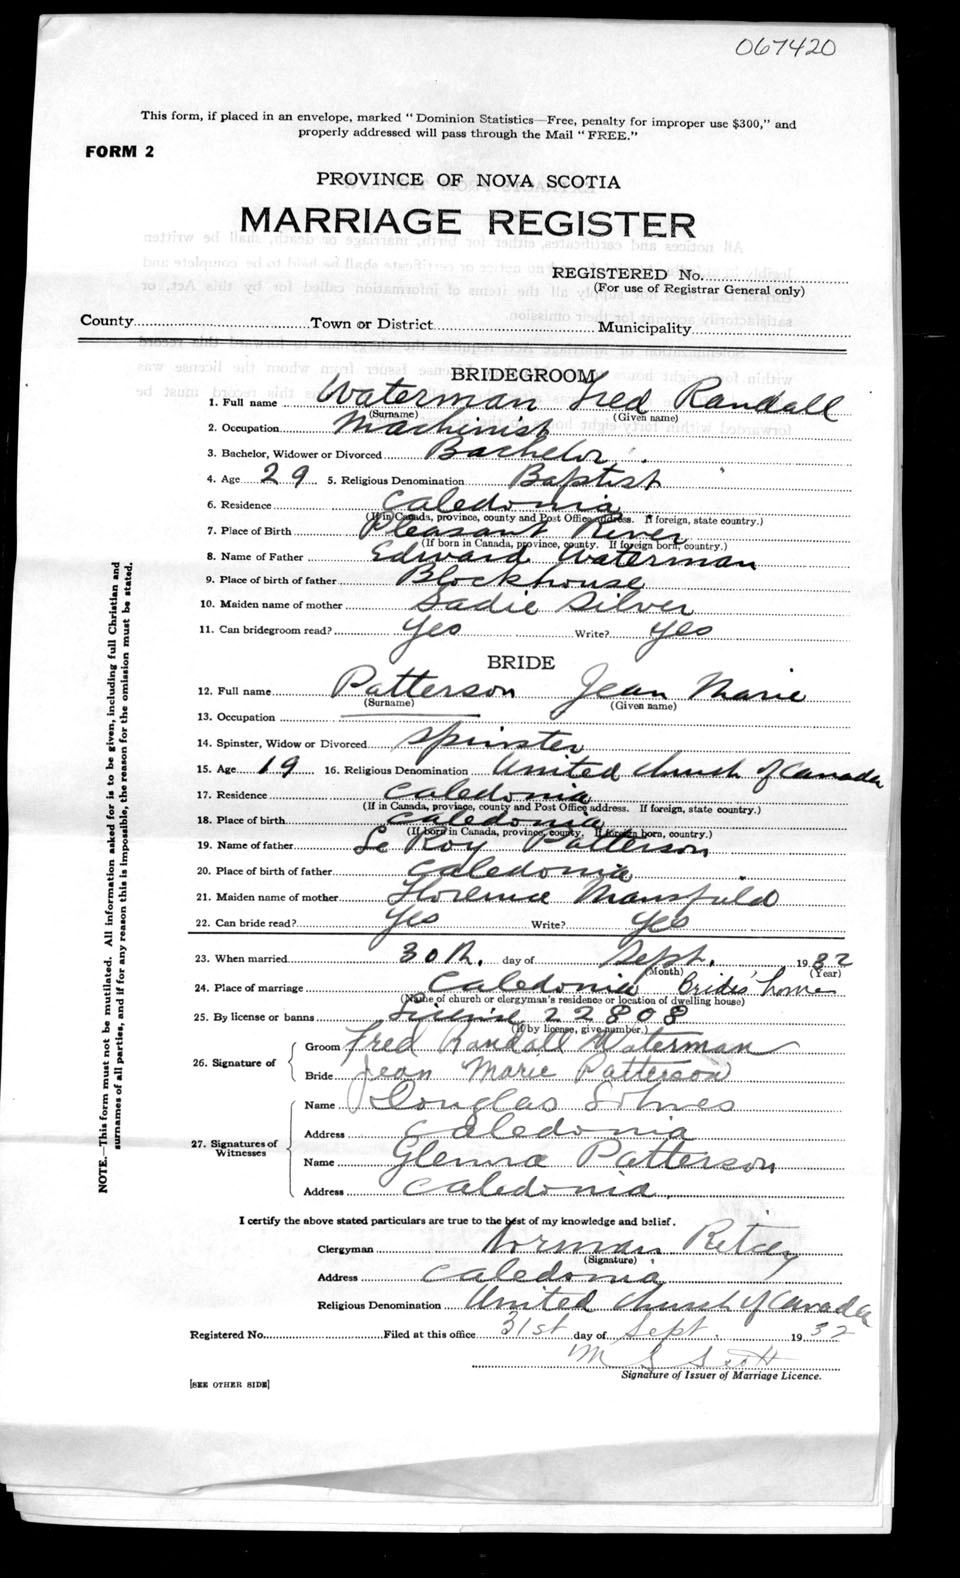 067420
This form, if placed in an envelope, marked "Dominion Statistics—Free, penalty for improper use $300," and
properly addressed will pass through the Mail "FREE."
FORM 2
PROVINCE OF NOVA SCOTIA
MARRIAGE REGISTER
REGISTERED No.
(For use of Registrar General only)
County Town or District Municipality
BRIDEGROOM
1. Full name Waterman Fred Randall
(Surname) (Given name)
2. Occupation Machinist
3. Bachelor, Widower or Divorced Bachelor
4. Age 29 5. Religious Denomination Baptist
6. Residence Caledonia
(If in Canada, province, county and Post Office address. If foreign, state country.)
7. Place of Birth Pleasant River
(If born in Canada, province, county. If foreign born, country.)
8. Name of Father Edward Waterman
9. Place of birth of father Blockhouse
10. Maiden name of mother Sadie Silver
11. Can bridegroom read? Yes Write? Yes
BRIDE
12. Full name Patterson Jean Marie
(Surname) (Given name)
13. Occupation
14. Spinster, Widow or Divorced Spinster
15. Age 19 16. Religious Denomination United Church of Canada
17. Residence Caledonia
(If in Canada, province, county and Post Office address. If foreign, state country.)
18. Place of birth Caledonia
(If born in Canada, province, county. If foreign born, country.)
19. Name of father Le Roy Patterson
20. Place of birth of father Caledonia
21. Maiden name of mother Florence Mansfield
22. Can bride read? Yes Write? Yes
23. When married 30th. day of Sept. 1932
(Month) (Year)
24. Place of marriage Caledonia Bride's home
(Name of church or clergyman's residence or location of dwelling house)
25. By license or banns License 22808
(If by license, give number.)
26. Signature of Groom Fred Randall Waterman
Bride Jean Marie Patterson
27. Signatures of Witnesses
Name Douglas
Address Caledonia
Name Glenna Patterson
Address Caledonia
I certify the above stated particulars are true to the best of my knowledge and belief.
Clergyman Norman Ritcey
(Signature)
Address Caledonia
Religious Denomination United Church of Canada
Registered No. Filed at this office 31st day of Sept. 1932
M S Scott
Signature of Issuer of Marriage Licence.
[SEE OTHER SIDE]
NOTE.—This form must not be mutilated. All information asked for is to be given, including full Christian and
surnames of all parties, and if for any reason this is impossible, the reason for the omission must be stated.